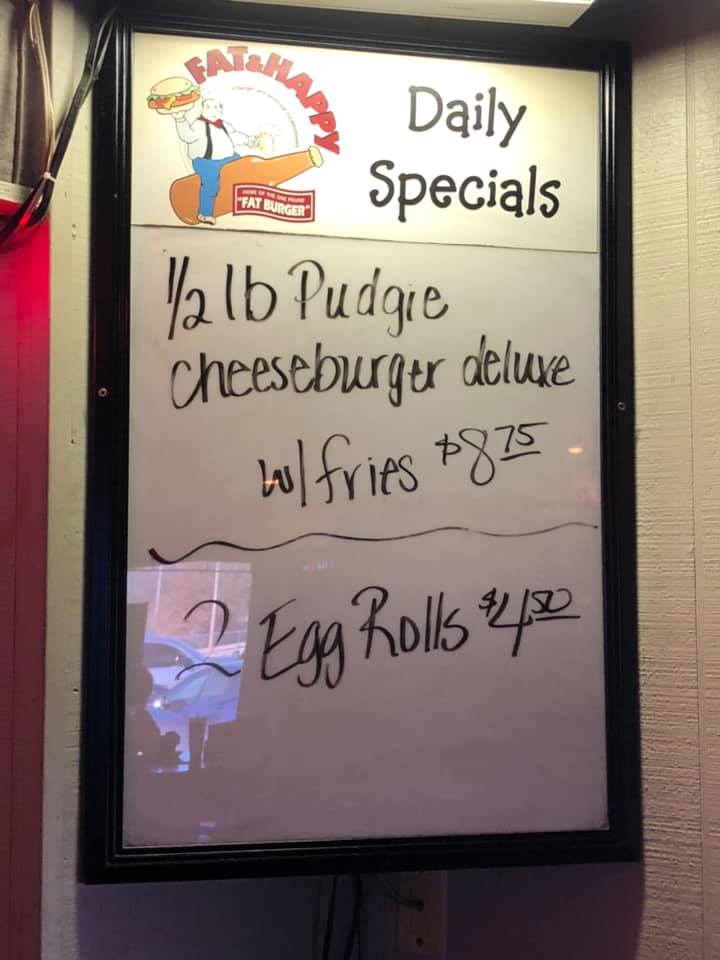 FAT & HAPPY
Daily
Specials
HOME OF THE ONE POUND
"FAT BURGER"
1/2 lb Pudgie
cheeseburger deluxe
w/ fries $8 75
2 Egg Rolls $4 50